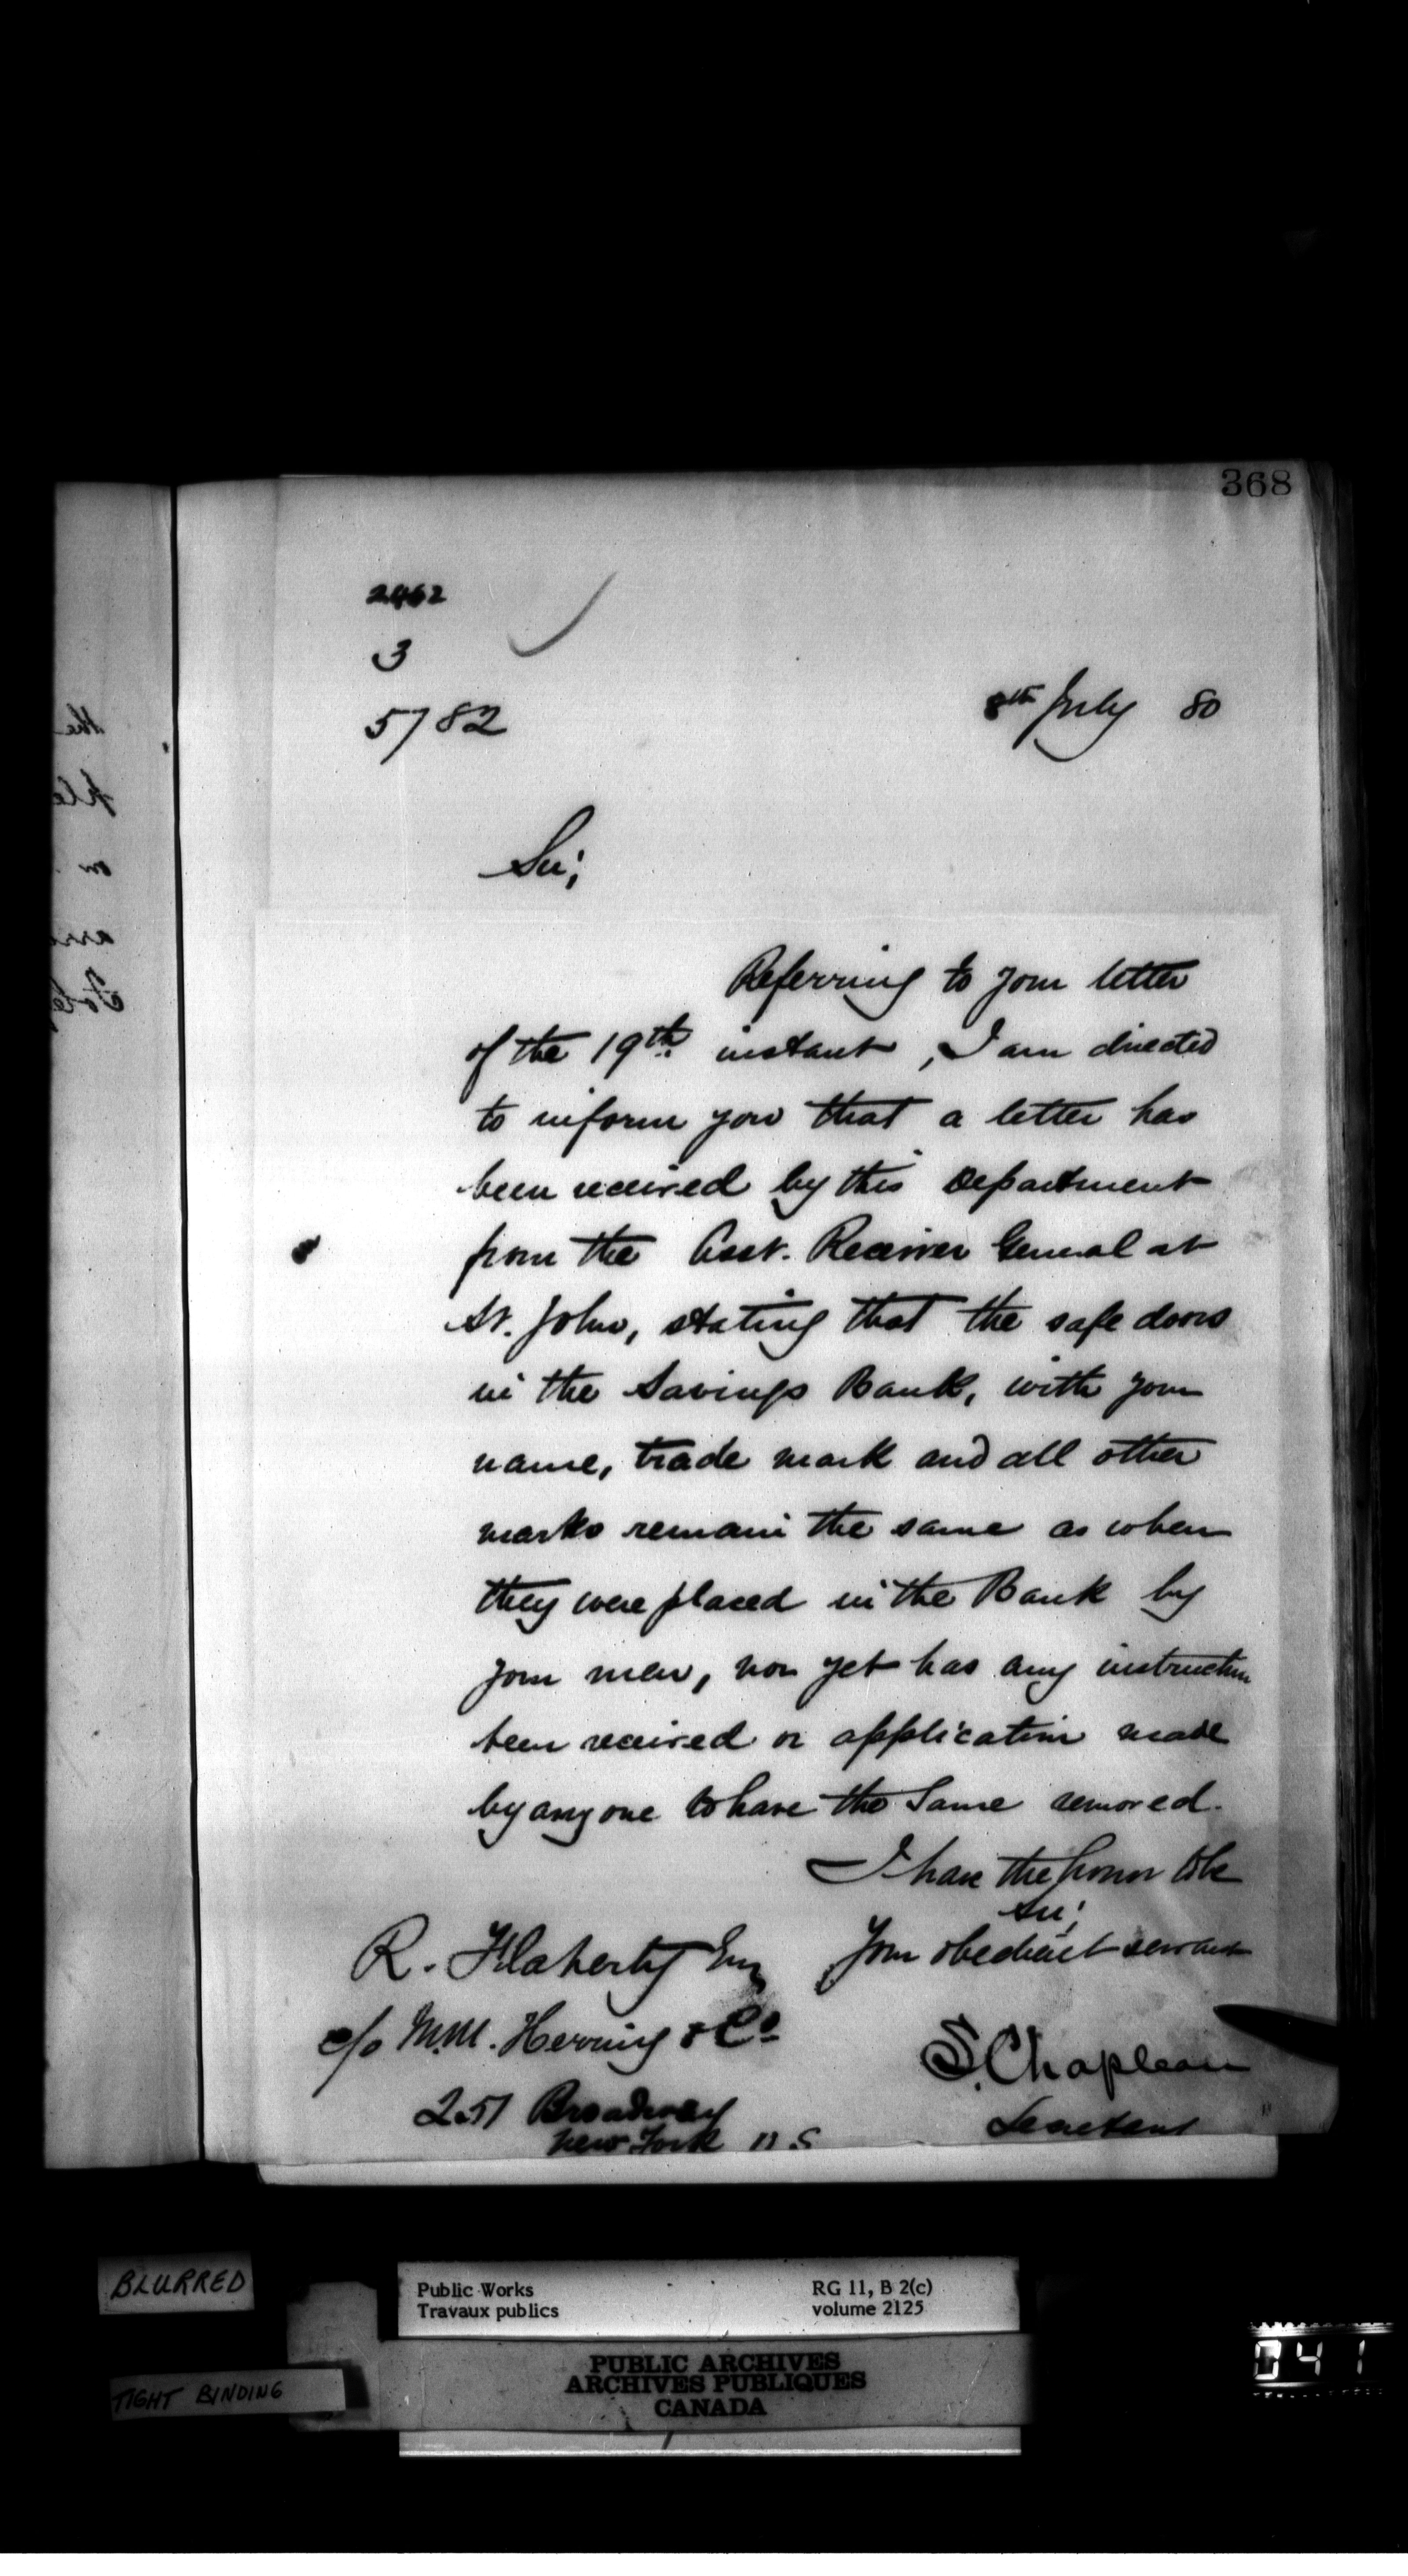 368
2462
3
5782
8th July 80
Sir;
Referring to your letter
of the 19th instant, I am directed
to inform you that a letter has
been received by this Department
from the Asst. Receiver General at
St. John, stating that the safe doors
in the Savings Bank, with your
name, trade mark and all other
marks remain the same as when
they were placed in the Bank by
your men, nor yet has any instruction
been received or application made
by any one to have the same removed.
I have the honor to be
Sir;
Your obedient servant
R. Flaherty Esq
c/o M.M. Herring & Co
251 Broadway
New York U S
S. Chapleau
Secretary
BLURRED
TIGHT BINDING
Public Works
Travaux publics
RG 11, B 2(c)
volume 2125
PUBLIC ARCHIVES
ARCHIVES PUBLIQUES
CANADA
041